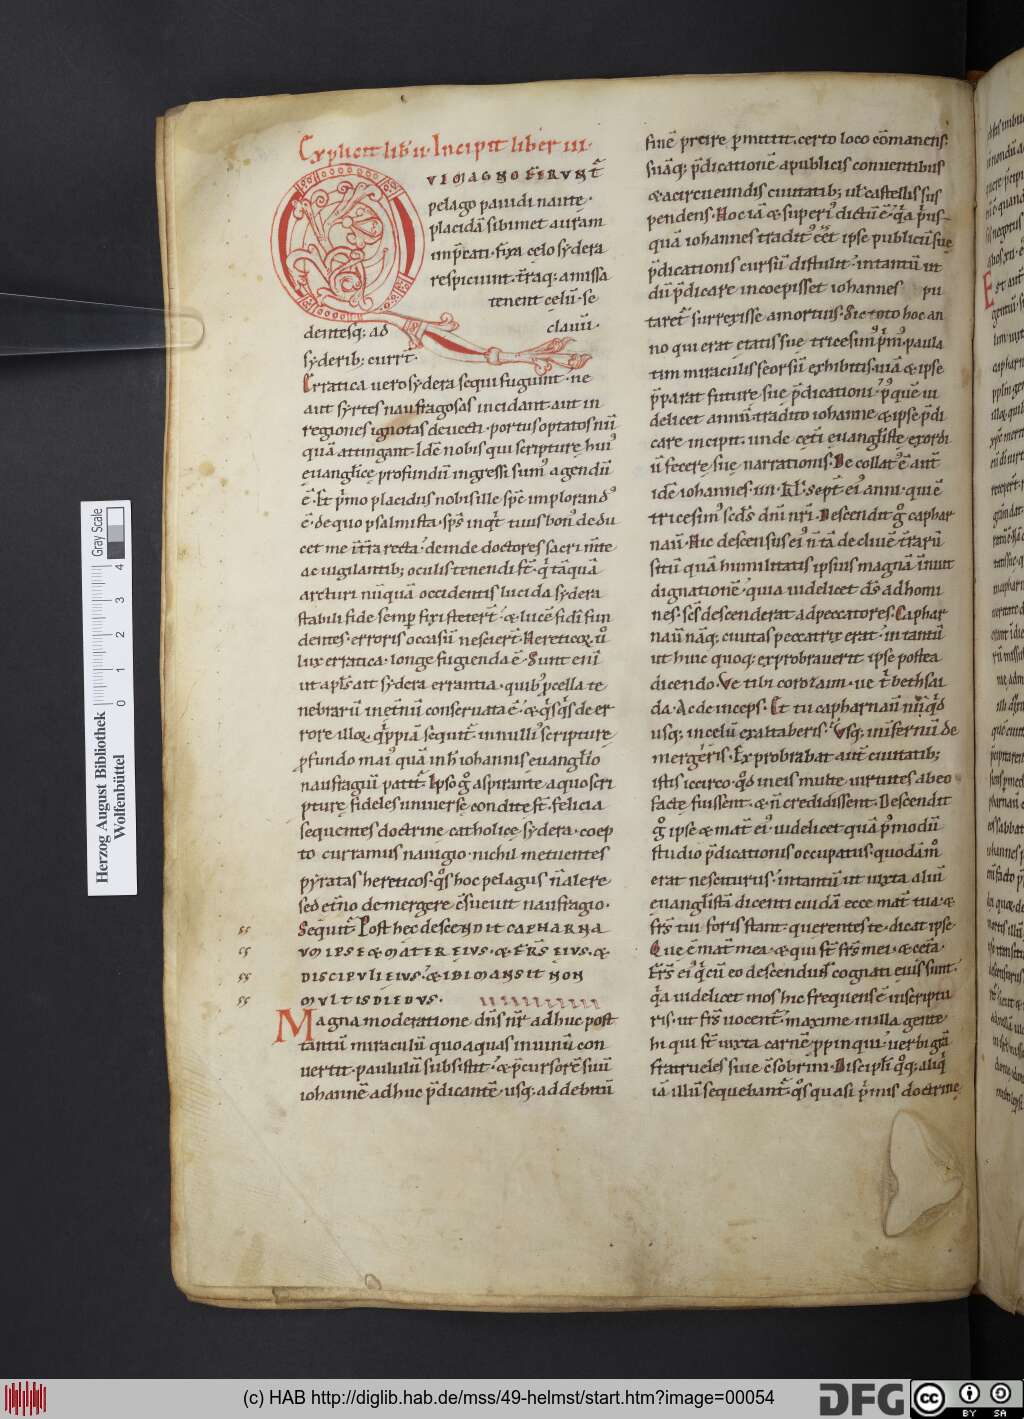 Explicit lib̄ ii. Incipit liber iii.
QVI MAGNO FERVNT̄
pelago pauidi naute.
placidā sibimet auram
imp̄cati. fixa celo sydera
respiciunt. t̄raq; amissa
tenent celū. se
dentesq; ad clauū.
syderib; currt̄.
Erratica uero sydera sequi fugiunt. ne
aut syrtes naufragosas incidant. aut in
regiones ignotas deuecti. portus optatos nū
quā attingant. Idē nobis qui scripturę hui᾽
euangl̄icę profundū ingressi sum᾽ agendū
ē. Et p̄mo placidus nobis ille sp̄c implorand᾽
ē. de quo psalmista. sp̄s inq̄t tuus bon᾽ dedu
cet me in t̄ra recta. deinde doctores sacri m̄te
ac uigilantib; oculis tenendi st̄. q̄ tāquā
arcturi nūquā occidentis lucida sydera
stabili fide semp̄ fixi stetert̄. & lucē fidi fun
dentes. erroris occasū nesciert̄. Hereticoꝝ ū
lux erratica. longe fugienda ē. Sunt eni
ut apl̄s ait sydera errantia. quib᾽ pcella te
nebrarū in et̄nū conseruata ē. & q̄sq̄s de er
rore illoꝝ q̄ppiā sequit̄. in nulli᾽ scripturę
pfundo mai᾽ quā in h̄ iohannis euangl̄io
naufragiū patit̄. Ipso g̊ aspirante a quo scri
pturę fideles uniuersę condite st̄. felicia
sequentes doctrine catholicę sydera. coep
to curramus nauigio. nichil metuentes
pyratas hereticos. q̊s hoc pelagus n̄ alere
sed et̄no demergere c̄sueuit naufragio.
ss Sequit̄. Post hec descendit capharna
ss VM IPSE & MATER EIVS. & FRS̄ EIVS. &
ss DISCIPVLI EIVS. & IBI MANSIT NON
ss MVLTIS DIEBVS.
Magna moderatione dn̄s nr̄ adhuc post
tantū miraculū quo aquas in uinū con
uertit. paululū subsistit. & p̄cursorē suū
iohannē adhuc p̄dicantē. usq; ad debitū
finē p̄reire p̄mittit. certo loco cōmanens.
suāq; p̄dicationē a publicis conuentibus
& a circueundis ciuitatib; ul̄ castellis sus
pendens. Hoc iā & superi᾽ dictū ē. q̄a p̄us
quā iohannes tradit᾽ eēt ipse publicū suę
p̄dicationis cursū distulit. in tantū ut
dū p̄dicare incoepisset iohannes pu
taret᷑ surrexisse a mortuis. Sic toto hoc an
no qui erat etatis suę tricesim᾽ p̄m᾽. paula
tim miraculis seorsū exhibitis. uiā & ipse
p̄parat futurę suę p̄dicationi. p᾽ quē ui
delicet annū. tradito iohanne & ipse p̄di
care incipit. unde cęt̄i euangl̄istę exordi
ū fecere suę narrationis. De collat᾽ ē aut̄
idē iohannes. iiii. Kl̄. sept̄. ei᾽ anni. qui ē
tricesim᾽ scd̄s dn̄i nr̄i. Descendit g̊ caphar
naū. Hic descensus ei᾽ n̄ tā decliuē t̄rarū
sitū quā humilitatis ipsius magnā in̄uit
dignationē. quia uidelicet d̄s ad homi
nes. sc̄s descenderat ad peccatores. Caphar
naū nāq; ciuitas peccatrix erat. in tantū
ut huic quoq; exprobrauerit ipse postea
dicendo. Ve tibi corozaim. ue t̄ bethsai
da. Ac deinceps. Et tu capharnaū nūq̊d
usq; in celū exaltaberis. Vsq; in infernū de
mergeris. Exprobrabat aut̄ ciuitatib;
istis iccirco. q̊d in eis multe uirtutes ab eo
facte fuissent. & n̄ credidissent. Descendit
g̊ ipse & mat̄ ei᾽ uidelicet quā p᾽modū
studio p̄dicationis occupatus. quodām̊
erat nesciturus. in tantū ut iuxta aliū
euangl̄istā dicenti cuidā ecce mat̄ tua &
frs̄ tui foris stant. querentes te. dicat ipse.
Quę ē mat̄ mea. & qui st̄ frs̄ mei. & cet̄a.
Frs̄ ei᾽ q̄ cū eo descendunt̄ cognati eius sunt.
q̄a uidelicet mos hic frequens ē in scriptu
ris. ut frs̄ uocent̄. maxime in illa gente.
hi qui st̄ iuxta carnē ppinqui. uerbi grā
fratrueles siue c̄sobrini. Discipl̄i q̊q; aliq̄
iā illū sequebant̄. q̊s quasi p̄mis doctrinę
Herzog August Bibliothek
Wolfenbüttel
0 1 2 3 4 Gray Scale
(c) HAB http://diglib.hab.de/mss/49-helmst/start.htm?image=00054
DFG
cc BY SA